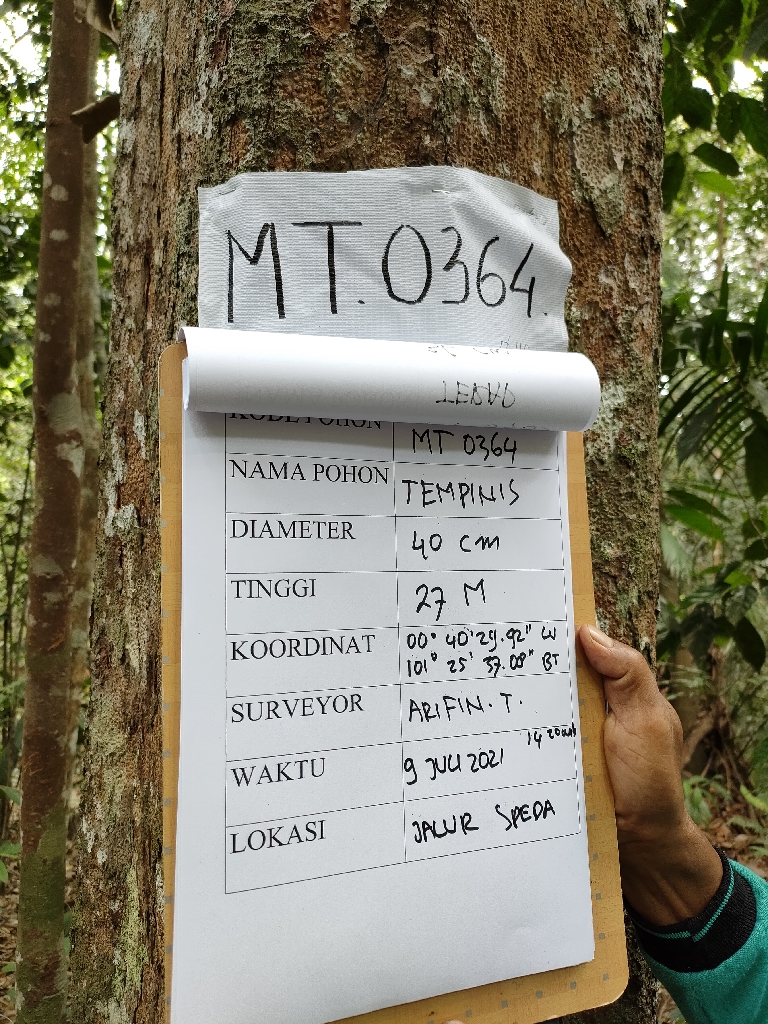 MT.0364.
KODE POHON MT 0364
NAMA POHON TEMPINIS
DIAMETER 40 cm
TINGGI 27 M
KOORDINAT 00° 40' 29.92" LU
101° 25' 37.08" BT
SURVEYOR ARIFIN.T.
WAKTU 9 JULI 2021 14 20 WIB
LOKASI JALUR SPEDA